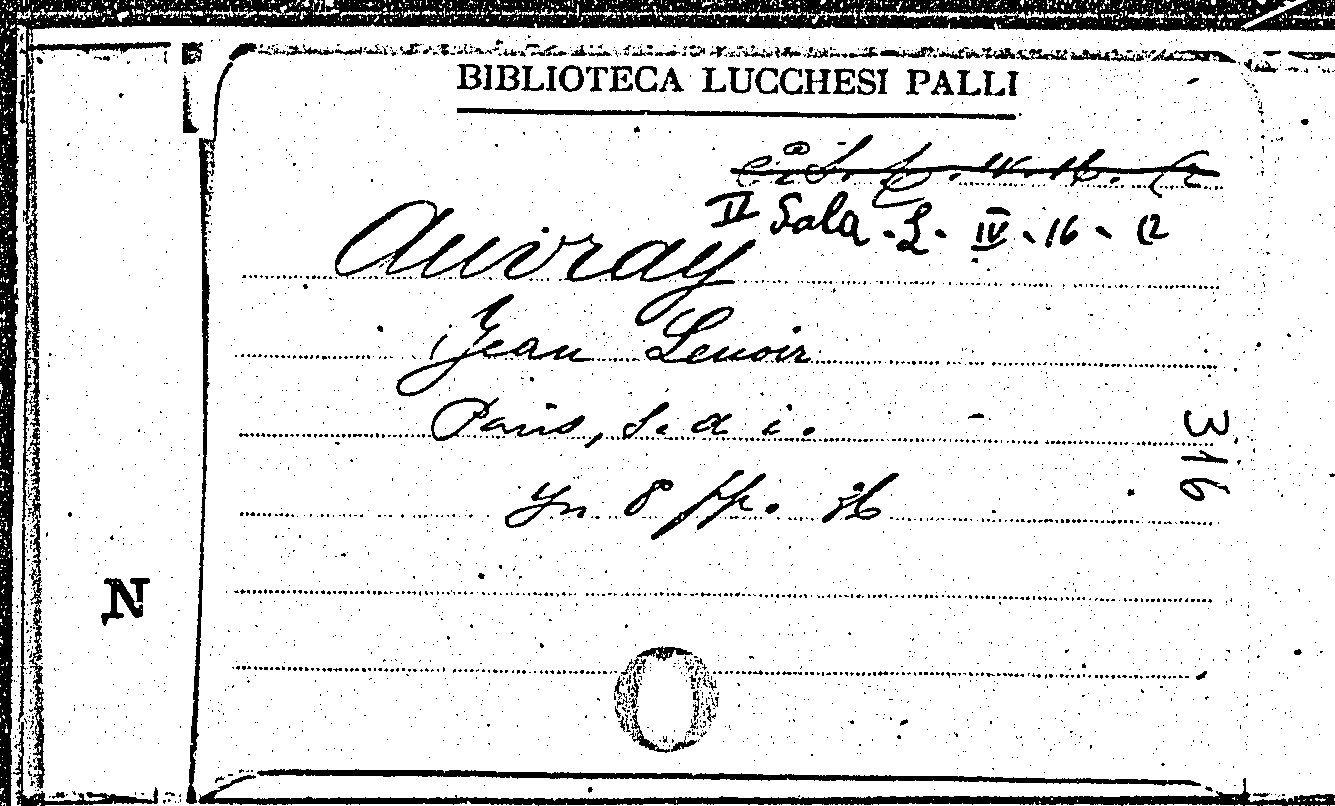 BIBLIOTECA LUCCHESI PALLI
II Sala. L. IV. 16 - 12
Auvray
Jean Lenoir
Paris, s. d i.
In 8 pp. 36
316
N